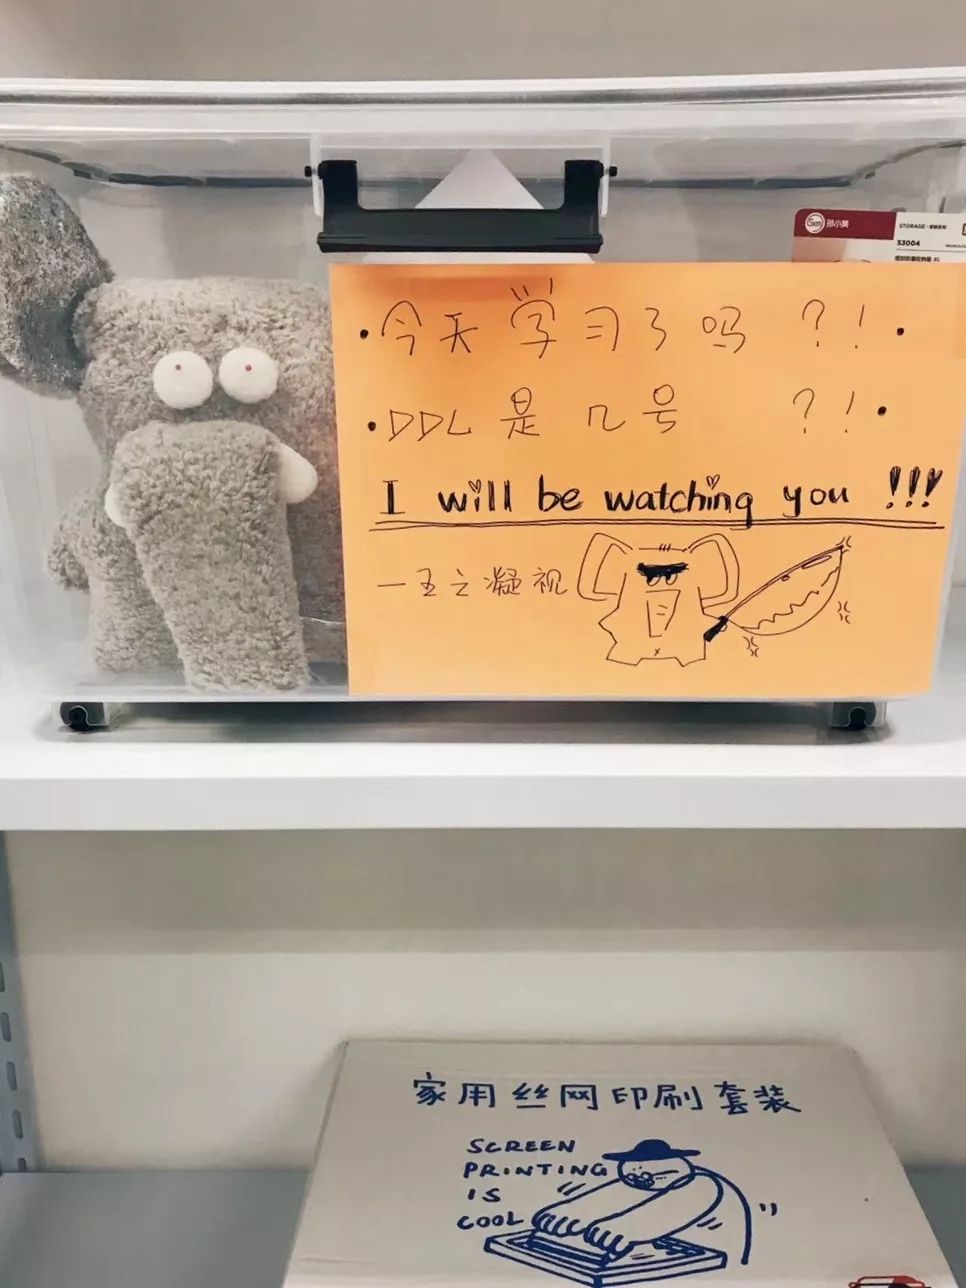 孙小美
STORAGE
S3004
·今天学习了吗?!·
·DDL是几号 ?!·
I will be watching you !!!
一王之凝视
家用丝网印刷套装
SCREEN
PRINTING
IS
COOL